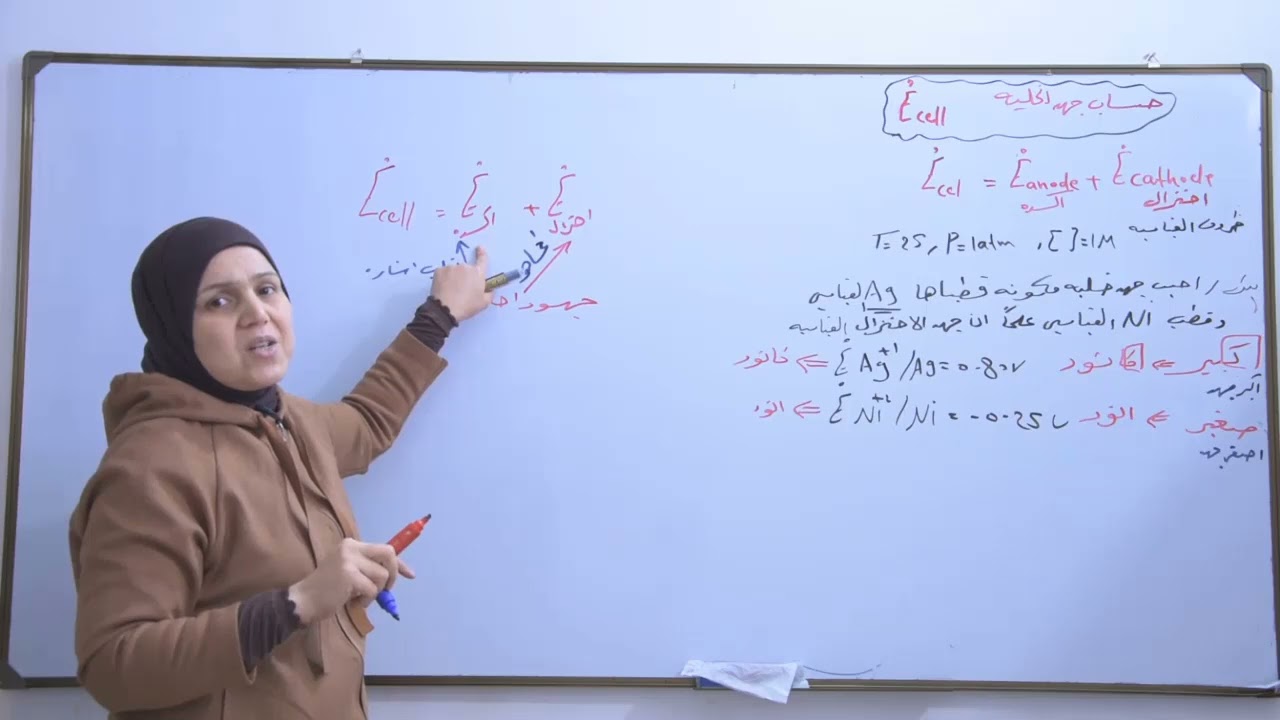 حساب جهد الخلية E°cell
E°cel = E°anode + E°cathode
اكسده اختزال
ظروف القياسيه T=25, P=1atm, [ ]=1M
/ احسب جهد خليه مكونه قطباها Ag القياسي
وقطب Ni القياسي علماً ان جهد الاختزال القياسيه
كبير ⇐ كاثود E° Ag+1/Ag = 0.80V ⇐ كاثود
اكبر جهد
صغير ⇐ انود E° Ni+2/Ni = -0.25V ⇐ انود
اصغر جهد
E°cell = E° + E°
اكسده اختزال
اشاره
جهود